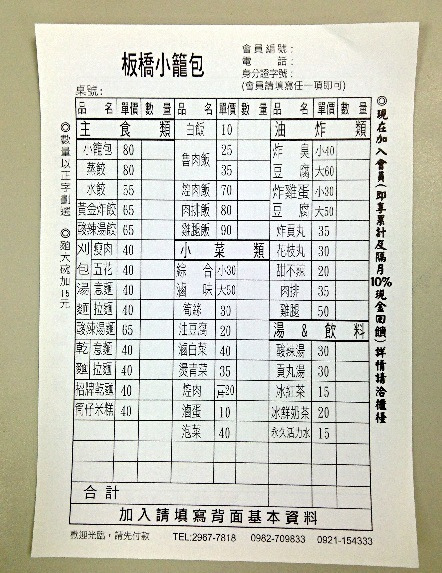 板橋小籠包
會員編號：
電話：
身分證字號：
(會員請填寫任一項即可)
桌號：
品名 單價 數量 品名 單價 數量 品名 單價 數量
主食類 白飯 10 油炸類
小籠包 80 魯肉飯 25 炸臭豆腐 小40
蒸餃 80 35 大60
水餃 55 焢肉飯 70 炸雞蛋豆腐 小30
黃金炸餃 65 肉排飯 80 大50
酸辣湯餃 65 雞腿飯 90 炸貢丸 35
刈包 瘦肉 40 小菜類 花枝丸 30
五花 40 綜合滷味 小30 甜不辣 20
湯麵 意麵 40 大50 肉排 35
拉麵 40 筍絲 30 雞腿 50
酸辣湯麵 65 油豆腐 20 湯&飲料
乾麵 意麵 40 滷白菜 40 酸辣湯 30
拉麵 40 燙青菜 35 貢丸湯 30
招牌乾麵 40 焢肉 20 冰紅茶 15
筒仔米糕 40 滷蛋 10 冰鮮奶茶 20
泡菜 40 永久活力水 15
合計
加入請填寫背面基本資料
歡迎光臨，請先付款 TEL:2967-7818 0982-709833 0921-154333
◎數量以正字劃選 ◎麵大碗加15元
◎現在加入會員(即享累計及隔月10%現金回饋)詳情請洽櫃檯